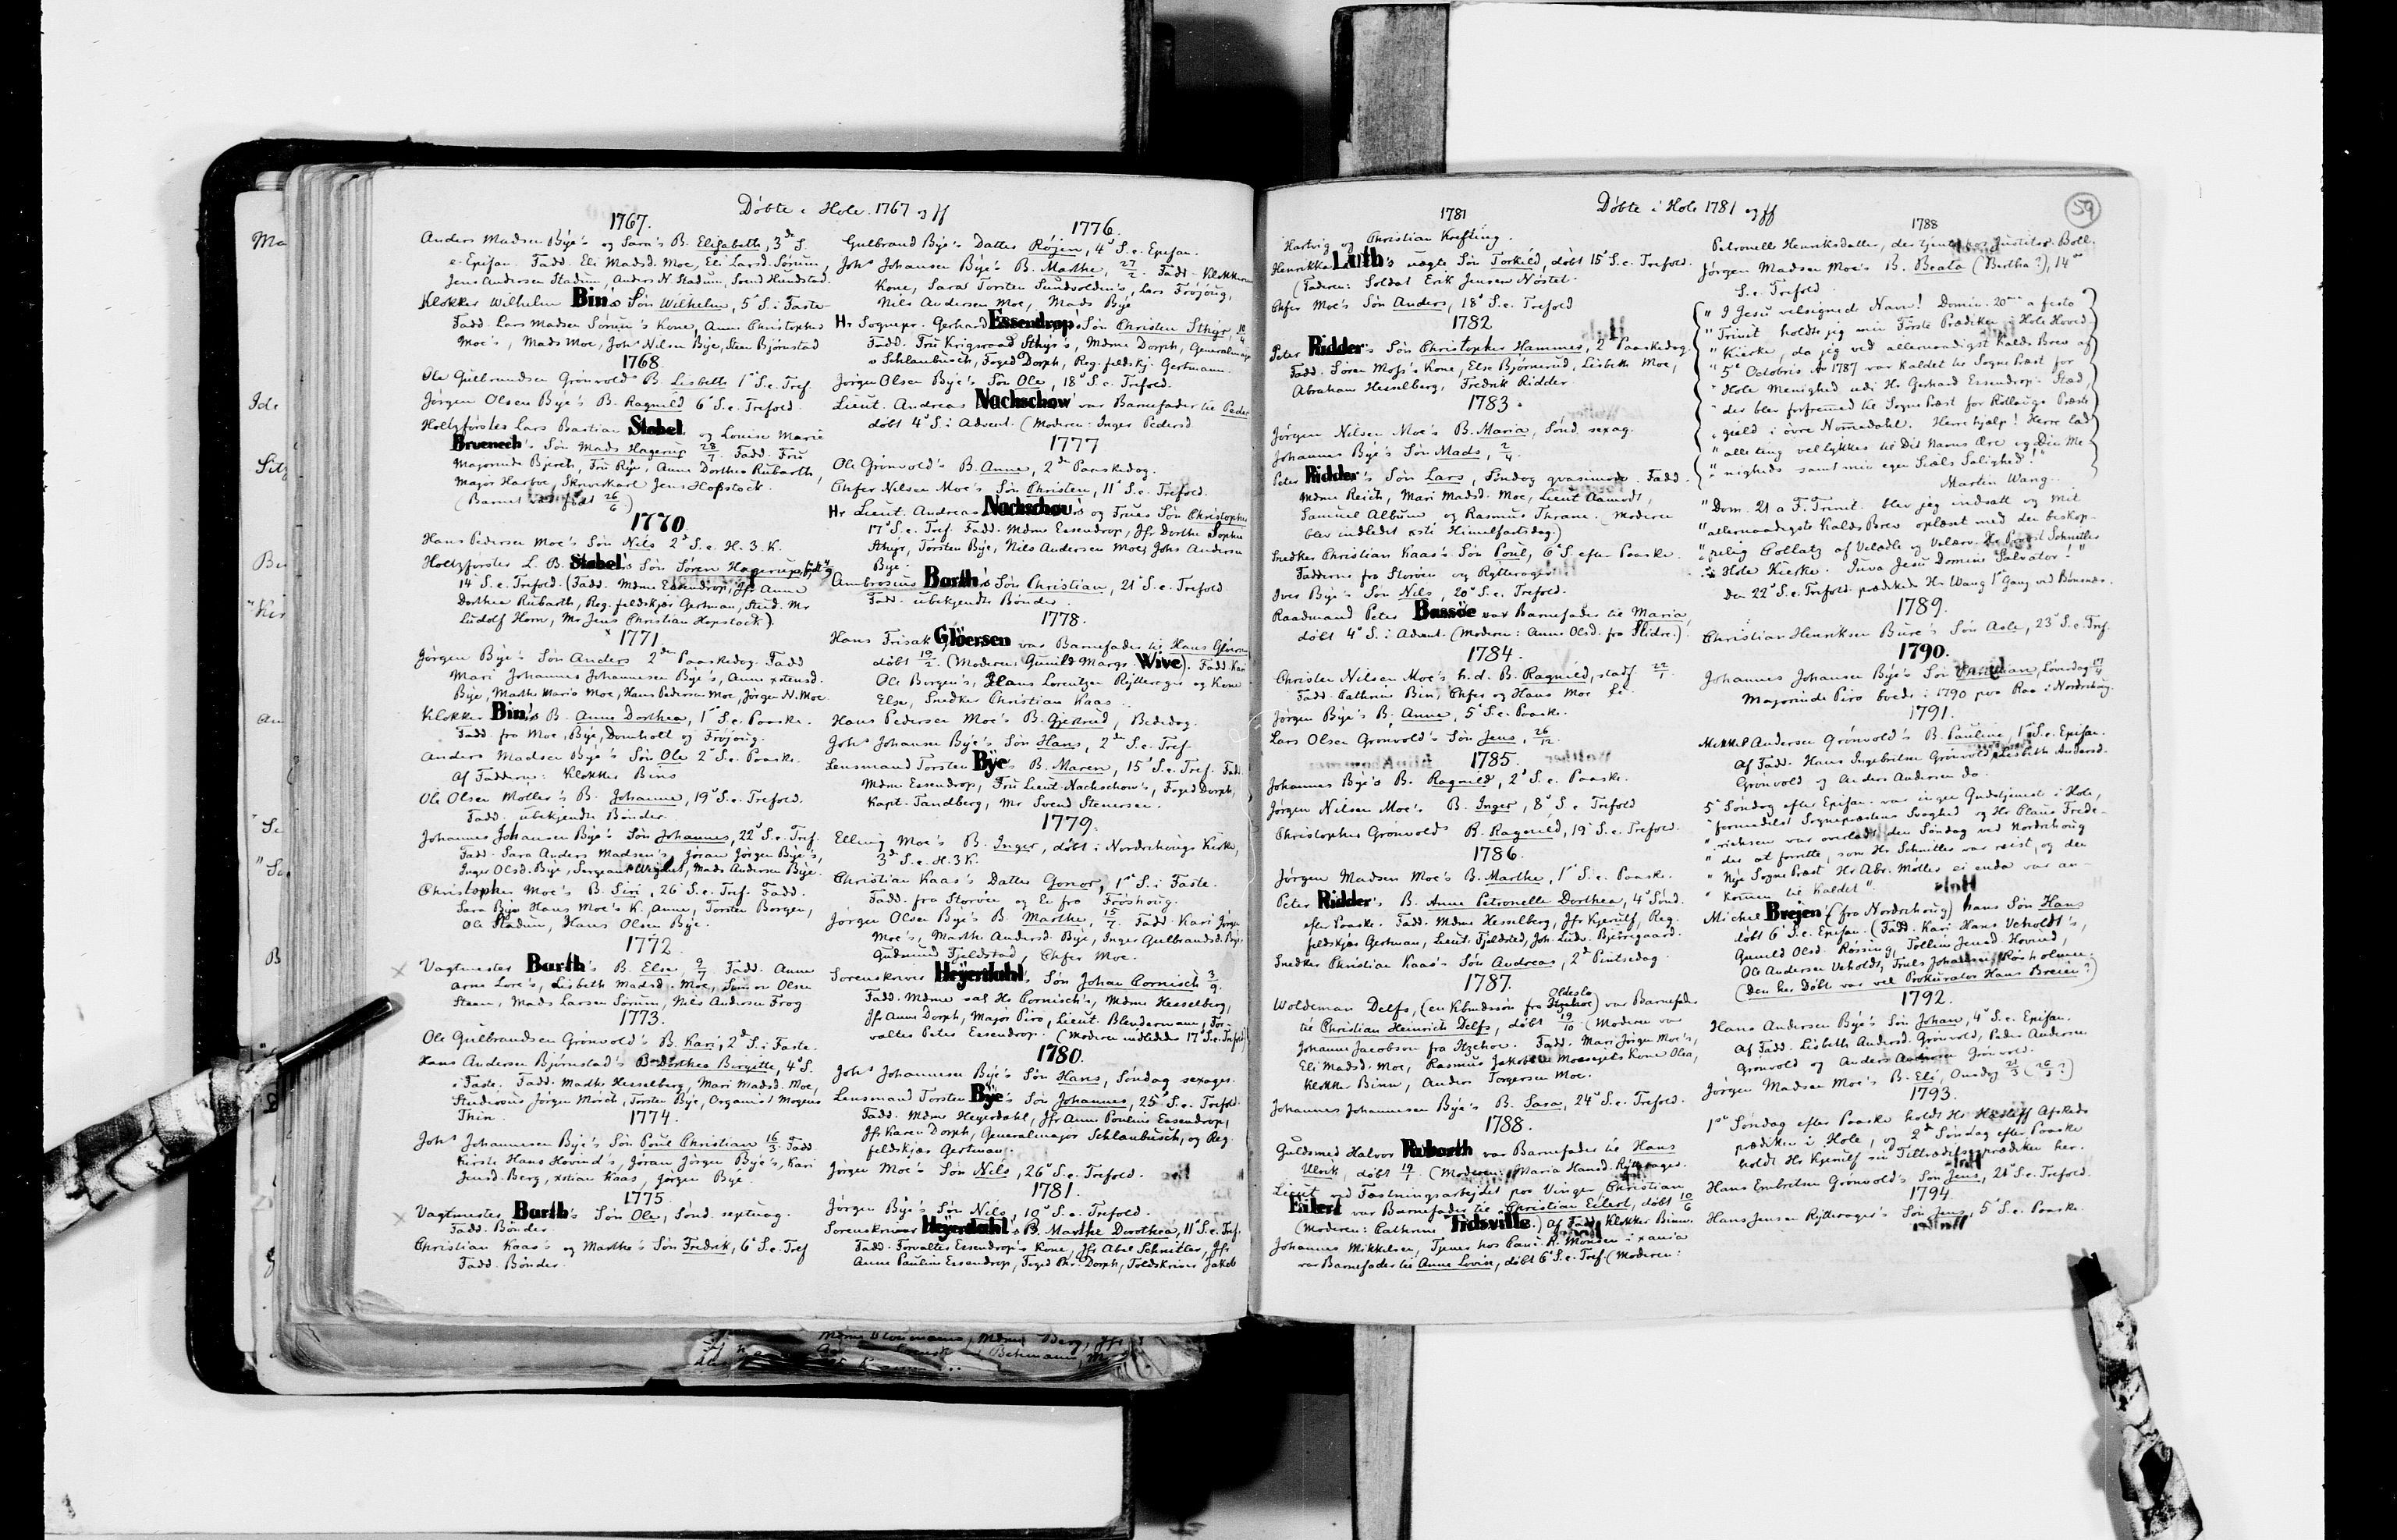 Døbte i Hole 1767 og ff
1767.
Anders Madsen Bye's og Sara's B. Elisabeth, 3de S.
e. Epifan. Fadd. Eli Madsd. Moe, Eli Larsd. Sørum,
Jens Andersen Stadum, Anders N. Stadum, Svend Hundstad.
Klokker Wilhelm Bin's Søn Wilhelm, 5te S. i Faste
Fadd. Lars Madsen Sørum's Kone, Anne Christopher
Moe's, Mads Moe, Johs Nilsen Bye, Steen Bjørnstad
1768.
Ole Gulbrandsen Grønvold's B. Lisbeth 1ste S. e. Tref.
Jørgen Olsen Bye's B. Ragnild 6te S. e. Trefold.
Holtzførster Lars Bastian Stabel og Louise Marie
Bruenech's Søn Mads Hagerup 28/7. Fadd. Fru
Majorinde Bjerch, Fru Rye, Anne Dorthea Rubarth,
Major Harboe, Skrivekarl Jens Hopstock.
(Barnet var født 26/6)
1770.
Hans Pedersen Moe's Søn Nils 2d S. e. H. 3. K.
Holtzførster L. B. Stabel's Søn Søren Hagerup,
14 S. e. Trefold. (Fadd. Mdme Essendrop, Jfr Anne
Dorthea Rubarth, Reg. feldskjær Gertman, Stud. Mr
Ludolf Horn, Mr Jens Christian Hopstock)
1771.
Jørgen Bye's Søn Anders 2den Paaskedag. Fadd
Mari Johannes Johannesen Bye's, Anne xstensd.
Bye, Marthe Maria Moe, Hans Pedersen Moe, Jørgen N. Moe
Klokker Bin's B. Anne Dorthea, 1ste S. e. Paaske.
Fadd. fra Moe, Bye, Domholt og Frøjoug.
Anders Madsen Bye's Søn Ole 2d S. e. Paaske.
Af Fadderne: Klokker Bins
Ole Olsen Møller's B. Johanne, 19de S. e. Trefold.
Fadd. ubekjendte Bønder.
Johannes Johansen Bye's Søn Johannes, 22d S. e. Tref.
Fadd. Sara Anders Madsen's, Jøran Jørgen Bye's,
Inger Olsd. Bye, Sergeant Wegner, Mads Andersen Bye.
Christopher Moe's B. Siri, 26 S. e. Tref. Fadd.
Sara Bye Hans Moe's K. Anne, Torsten Borgen,
Ole Stadum, Hans Olsen Bye.
1772.
Vagtmester Barth's B. Else, 9/7 Fadd. Anne
Arne Lore's, Lisbeth Madsd. Moe, Simon Olsen
Steen, Mads Larsen Sørum, Nils Andersen Frog
1773.
Ole Gulbrandsen Grønvold's B. Kari, 2d S. i Faste.
Hans Andersen Bjørnstad's B. Dorthea Birgitte, 4d S.
i Faste. Fadd. Marthe Hesselberg, Mari Madsd. Moe,
Studiosus Jørgen Morch, Torsten Bye, Organist Mogens
Thin.
1774.
Johs Johannesen Bye's Søn Poul Christian 16/3 Fadd
Kirste Hans Hovind's, Jøran Jørgen Bye's, Kari
Jensd. Berg, xstian Kaas, Jørgen Bye
1775.
Vagtmester Barth's Søn Ole, Sønd. septuag.
Fadd. Bønder.
Christian Kaas's og Marthe's Søn Fredrik, 6d S. e. Tref
Fadd. Bønder.
1776.
Gulbrand Bye's Datter Røjen, 4d S. e. Epifan.
Johs Johansen Bye's B. Marthe, 27/2. Fadd. Klokkerens
Kone, Sara Torsten Sundvolden's, Lars Frøjoug,
Nils Andersen Moe, Mads Bye
Hr Sognepr. Gerhard Essendrop's Søn Christen Sthyr, 10/4
Fadd. Fru Krigsraad Sthyr's, Mdme Dorph, Generalmajor
v Schlanbusch, Foged Dorph, Reg. feldskj. Gertmann
Jørgen Olsen Bye's Søn Ole, 18d S. e. Trefold.
Lieut. Andreas Nachschow var Barnefader til Peder
døbt 4d S. i Advent. (Moderen: Inger Pedersd.
1777
Ole Grønvold's B. Anne, 2den Paaskedag.
Chfer Nilsen Moe's Søn Christen, 11d S. e. Trefold.
Hr Lieut. Andreas Nachschow's og Frues Søn Christopher
17d S. e. Tref. Fadd. Mdme Essendrop, Jfr Dorthe Sophie
Sthyr, Torsten Bye, Nils Andersen Moe, Johs Andersen
Bye.
Ambrosius Barth's Søn Christian, 21d S. e. Trefold
Fadd. ubekjendte Bønder.
1778.
Hans Frisak Gløersen var Barnefader til Hans Gløersen
døbt 19/2. (Moderen Gunild Margr. Wive). Fadd. Kari
Ole Borgen's, Hans Lorentzen Rytterager og Kone
Else, Snedker Christian Kaas..
Hans Pedersen Moe's B. Gjertrud, Bededag.
Johs Johansen Bye's Søn Hans, 2den S. e. Tref.
Lensmand Torsten Bye's B. Maren, 15d S. e. Tref. Fadd.
Mdme Essendrop, Fru Lieut. Nachschow's, Foged Dorph,
Kapt. Tandberg, Mr Svend Stenersen.
1779.
Elling Moe's B. Inger, døbt i Norderhougs Kirke,
3d S. e. H. 3 K.
Christian Kaas's Datter Gonor, 1ste S. i Faste.
Fadd. fra Storøen og En fra Frøshoug.
Jørgen Olsen Bye's B. Marthe, 15/7. Fadd. Kari Jørgen
Moe's, Marthe Andersd. Bye, Inger Gulbrandsd. Bye
Gudmund Fjeldstad, Chfer Moe.
Sorenskriver Heyerdahl's Søn Johan Cornisch 3/9.
Fadd. Mdme sal Hr Cornisch's, Mdme Hesselberg,
Jfr Anne Dorph, Major Piro, Lieut. Blendermann, For-
valter Peter Essendrop. (Moderen indledet 17d S. e. Trefold)
1780.
Johs Johannesen Bye's Søn Hans, Søndag sexages.
Lensmand Torsten Bye's Søn Johannes, 25d S. e. Trefold.
Fadd. Mdme Heyerdahl, Jfr Anne Pouline Essendrop,
Jfr Karen Dorph, Generalmajor Schlanbusch, og Reg.
feldskjær Gertman.
Jørgen Moe's Søn Nils, 26d S. e. Trefold.
1781.
Jørgen Bye's Søn Nils, 10d S. e. Trefold.
Sorenskriver Heyerdahl's B. Marthe Dorothea, 11d S. e. Tref.
Fadd. Forvalter Essendrop's Kone, Jfr Abel Schnitler, Jfr
Anne Pauline Essendrop, Foged Chr. Dorph, Toldskriver Jakob
Døbte i Hole 1781 og ff
59
1781
Hartvig og Christian Krefting.
Henrikke Luth's uægte Søn Torkild, døbt 15d S. e. Trefold.
(Faderen: Soldat Erik Jensen Nøstet.
Chfer Moe's Søn Anders, 18d S. e. Trefold
1782
Peter Ridder's Søn Christopher Hammer, 2 Paaskedag.
Fadd. Søren Moss's Kone, Else Bjørnerud, Lisbeth Moe,
Abraham Hesselberg, Fredrik Ridder
1783.
Jørgen Nilsen Moe's B. Maria, Sønd. sexag.
Johannes Bye's Søn Mads, 2/4.
Peter Ridder's Søn Lars, Søndag qvasimodo. Fadd.
Mdme Reich, Mari Madsd. Moe, Lieut Aamodt,
Samuel Album og Rasmus Thrane. (Moderen
blev indledet xsti Himmelfartsdag)
Snedker Christian Kaas's Søn Poul, 6d S. efter Paaske.
Fadderne fra Storøen og Rytterager.
Iver Bye's Søn Nils, 20d S. e. Trefold.
Raadmand Peter Bassøe var Barnefader til Maria,
døbt 4d S. i Advent. (Moderen: Anne Olsd. fra Slidre.)
1784.
Christen Nilsen Moe's h.d. B. Ragnild, stadf 22/1.
Fadd. Cathrine Bin, Chfer og Hans Moe
Jørgen Bye's B. Anne, 5d S. e. Paaske.
Lars Olsen Grønvold's Søn Jens, 26/12.
1785.
Johannes Bye's B. Ragnild, 2d S. e. Paaske.
Jørgen Nilsen Moe's B. Inger, 8d S. e Trefold
Christopher Grønvolds B. Ragnild, 19d S. e. Trefold.
1786.
Jørgen Madsen Moe's B. Marthe, 1ste S. e. Paaske.
Peter Ridder's B. Anne Petronelle Dorthea, 4de Sønd.
efter Paaske. Fadd. Mdme Hesselberg, Jfr Kjerulf, Reg.
feldskjær Gertman, Lieut. Fjeldsted, Joh. Ludv. Bjerregaard.
Snedker Christian Kaas's Søn Andreas, 2d Pintsedag.
1787.
Oldeslo
Woldeman Delfs, (en Kbmdssøn fra Itzehoe) var Barnefader
til Christian Heinrich Delfs, døbt 19/10 (Moderen var
Johanne Jacobsen fra Itzehoe. Fadd. Mari Jørgen Moe's,
Eli Madsd. Moe, Rasmus Jakobsen Moesegets Kone Olea,
Klokker Binn, Anders Torgersen Moe.
Johannes Johannesen Bye's B. Sara, 24d S. e. Trefold.
1788.
Guldsmed Halvor Rubarth var Barnefader til Hans
Ulrik, døbt 19/1. (Moderen: Maria Hansd. Rytterager.
Lieut. ved Fæstningsarbejdet paa Vinger Christian
Eilert var Barnefader til Christian Eilert, døbt 10/6
(Moderen: Cathrine Tidsville.) Af Fadd. Klokker Binn.
Johannes Mikkelsen, Tjener hos Pani. H. Monsen i xania
var Barnefader til Anne Lovise, døbt 6d S. e. Tref (Moderen:
1788
Petronelle Henriksdatter, der tjente hos Justitsr. Boll.
Jørgen Madsen Moe's B. Beata (Bertha?), 14de
S. e. Trefold.
" I Jesu velsignede Navn! Domin. 20ma a festo
" Trinit holdte jeg min Første Prædiken i Hole Hoved
" Kierke, da jeg ved allernaadigst Kalds Brev af
" 5te Octobris Ao 1787 var kaldet til Sogne Præst for
" Hole Menighed udi Hr Gerhard Essendrop's Stæd,
" der blev forfremed til Sogne Præst for Rollaugs Præste
" gield i øvre Nommedahl. Herre hjelp! Herre lad
" alle ting vellykkes til Dit Navns Ære og Din Me
" nigheds samt min egen Siæls Salighed!"
Martin Wang.
"Dom. 21 a F. Trinit. blev jeg indsatt og mit
"allernaadigste Kalds Brev oplæst med den biskop-
"pelig Collatz af Velædle og Velærv. Hr Provst Schnitler
"i Hole Kierke. Juva Jesu Domine Salvator!"
Den 22d S. e. Trefold. prædikede Hr Wang 1ste Gang ved Bønsnæs.
1789.
Christian Henriksen Bure's Søn Asle, 23d S. e. Tref.
1790.
Johannes Johansen Bye's Søn Christian, Løverdag 17/4
Majorinde Piro boede i 1790 paa Raa i Norderhoug.
1791.
Mikkel Andersen Grønvold's B. Pauline, 1ste S. e. Epifan.
Af Fadd. Hans Ingebritsen Grønvold, Lisbeth Andersd.
Grønvold og Anders Andersen do.
5te Søndag efter Epifan. var ingen Gudstjenest i Hole,
"formedelst Sognepræstens Svaghed og Hr Claus Frede-
"richsen var overladt den Søndag ved Norderhoug
" der at forrette, som Hr Schnitler var reist, og den
" Nye Sogne Præst Hr Abr. Møller ei enda var an-
" kommen til Kaldet".
Michel Brejen (fra Norderhoug) hans Søn Hans
døbt 6d S. e. Epifan. (Fadd. Kari Hans Veholdt's,
Gunild Olsd. Røssing, Tolline Jensd. Hovind,
Ole Andersen Veholdt, Truls Johannesen Røsholmen.
(Den her Døbte var vel Prokurator Hans Breien?)
1792.
Hans Andersen Bye's Søn Johan, 4d S. e. Epifan.
Af Fadd. Lisbeth Andersd. Grønvold, Peder Andersen
Grønvold og Anders Andersen Grønvold.
Jørgen Madsen Moe's B. Eli, Onsdag 21/3 (26/3?)
1793.
1ste Søndag efter Paaske holdt Hr Hesleff Afskeds
prædiken i Hole, og 2d Søndag efter Paaske
holdt Hr Kjerulf sin Tiltrædelsesprædiken her.
Hans Embritsen Grønvold's Søn Jens, 21d S. e. Trefold.
1794
Hans Jensen Rytterager's Søn Jens, 5d S. e. Paaske.